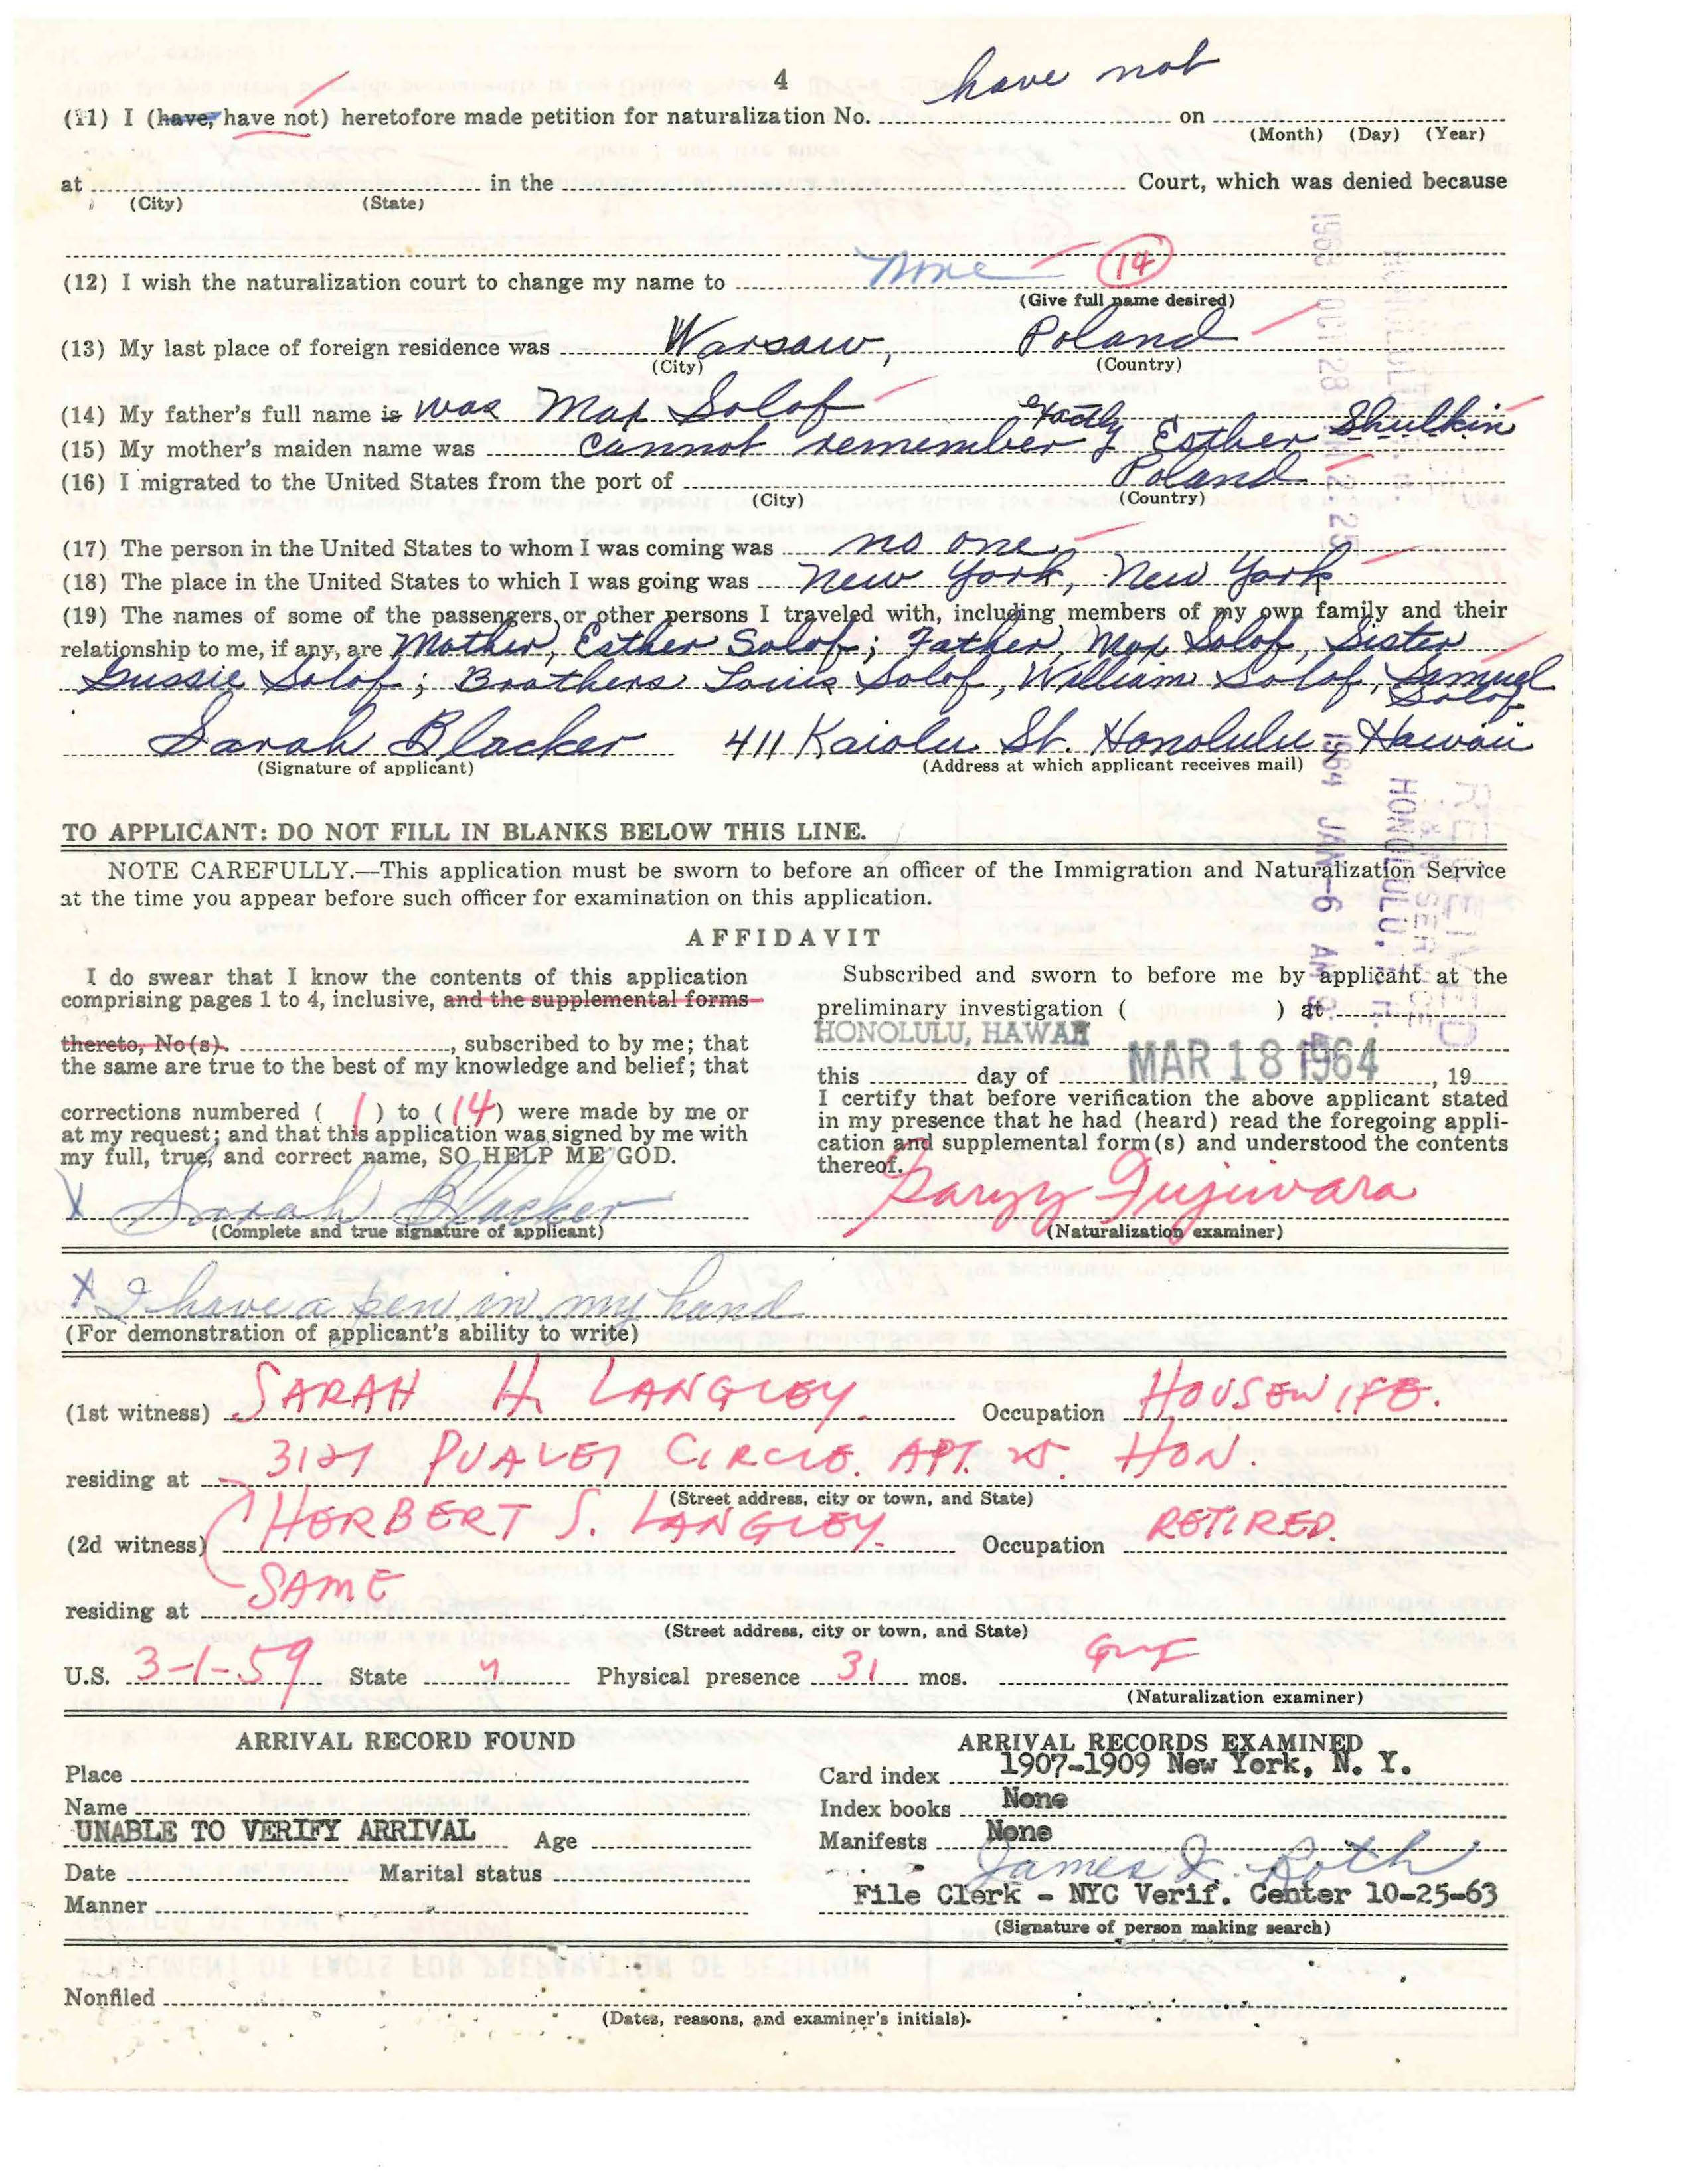 4
have not
(11) I (have, have not) heretofore made petition for naturalization No. on
(Month) (Day) (Year)
at in the Court, which was denied because
(City) (State)
(12) I wish the naturalization court to change my name to none 14
(Give full name desired)
(13) My last place of foreign residence was Warsaw, Poland
(City) (Country)
(14) My father's full name is was Max Solof
(15) My mother's maiden name was cannot remember exactly Esther Shulkin
(16) I migrated to the United States from the port of Poland
(City) (Country)
(17) The person in the United States to whom I was coming was no one
(18) The place in the United States to which I was going was New York, New York
(19) The names of some of the passengers or other persons I traveled with, including members of my own family and their
relationship to me, if any, are Mother, Esther Solof; Father, Max Solof, Sister
Gussie Solof; Brothers Louis Solof, William Solof, Samuel
Solof
Sarah Blacker 411 Kaiolu St. Honolulu, Hawaii
(Signature of applicant) (Address at which applicant receives mail)
1963 OCT 28 12:25
RECEIVED
HONOLULU, 
1964 JAN-6 AM
TO APPLICANT: DO NOT FILL IN BLANKS BELOW THIS LINE.
NOTE CAREFULLY.—This application must be sworn to before an officer of the Immigration and Naturalization Service
at the time you appear before such officer for examination on this application.
AFFIDAVIT
I do swear that I know the contents of this application
comprising pages 1 to 4, inclusive, and the supplemental forms
thereto, No(s). , subscribed to by me; that
the same are true to the best of my knowledge and belief; that
corrections numbered ( 1 ) to ( 14 ) were made by me or
at my request; and that this application was signed by me with
my full, true, and correct name, SO HELP ME GOD.
X Sarah Blacker
(Complete and true signature of applicant)
Subscribed and sworn to before me by applicant at the
preliminary investigation ( ) at
HONOLULU, HAWAII
this day of MAR 18 1964 , 19
I certify that before verification the above applicant stated
in my presence that he had (heard) read the foregoing appli-
cation and supplemental form(s) and understood the contents
thereof.
Fujiwara
(Naturalization examiner)
X I have a pen in my hand
(For demonstration of applicant's ability to write)
(1st witness) SARAH H. LANGLEY Occupation HOUSEWIFE.
residing at PUALEI CIRCLE. APT. HON.
(Street address, city or town, and State)
(2d witness) HERBERT S. LANGLEY Occupation RETIRED.
residing at SAME
(Street address, city or town, and State)
U.S. 3-1-59 State Physical presence 31 mos.
(Naturalization examiner)
ARRIVAL RECORD FOUND
Place
Name
UNABLE TO VERIFY ARRIVAL Age
Date Marital status
Manner
ARRIVAL RECORDS EXAMINED
Card index 1907-1909 New York, N. Y.
Index books None
Manifests None
James J. Roth
File Clerk - NYC Verif. Center 10-25-63
(Signature of person making search)
Nonfiled
(Dates, reasons, and examiner's initials).